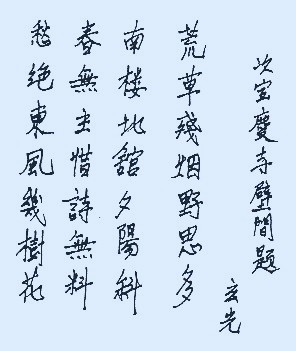 次宝慶寺壁間題
玄光
荒草殘烟野思多
南楼北舘夕陽斜
春無主惜詩無料
愁絶東風幾樹花